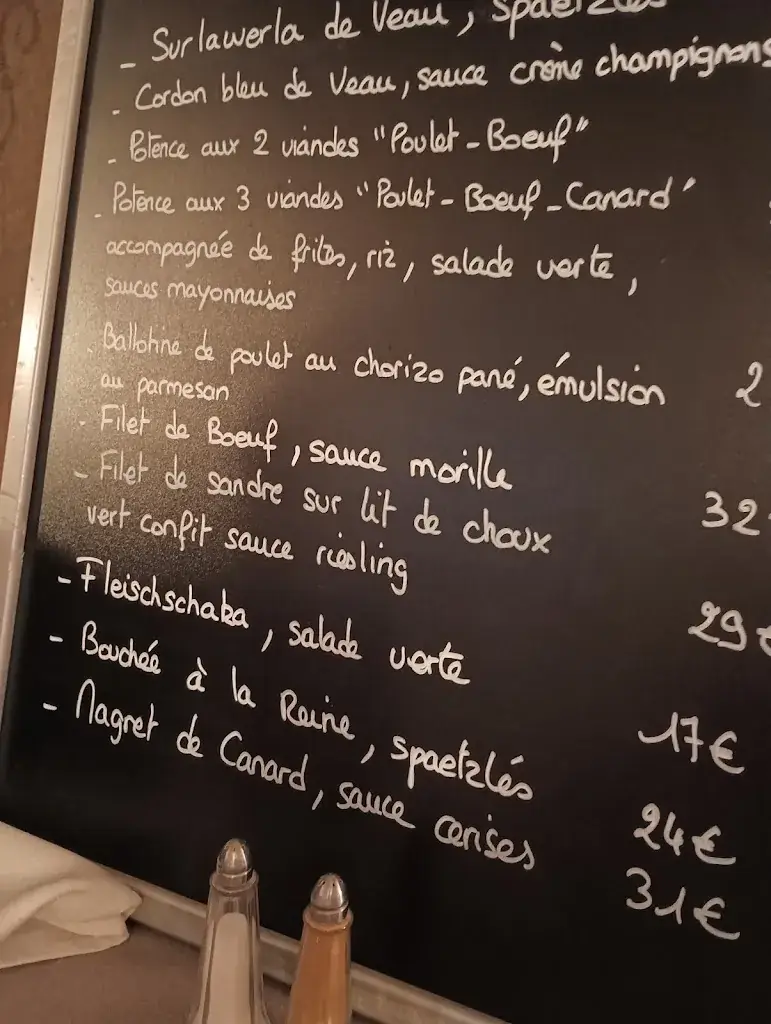 - Surlawerla de Veau, Spaetzlés
- Cordon bleu de Veau, sauce crème champignons
- Potence aux 2 viandes "Poulet - Boeuf"
- Potence aux 3 viandes "Poulet - Boeuf - Canard"
accompagnée de frites, riz, salade verte,
sauces mayonnaises
- Ballotine de poulet au chorizo pané, émulsion 2
au parmesan
- Filet de Boeuf, sauce morille 32
- Filet de sandre sur lit de choux
vert confit sauce riesling 29€
- Fleischschaka, salade verte 17€
- Bouchée à la Reine, spaetzlés 24€
- Magret de Canard, sauce cerises 31€